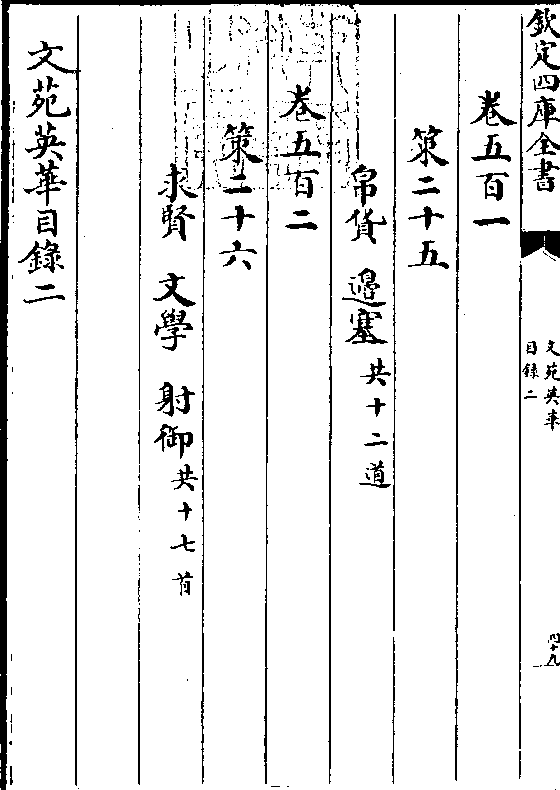 欽定四庫全書
文苑英華
目録二
四十九
卷五百一
策二十五
帛貨 邊塞 共十二道
卷五百二
策二十六
求賢 文學 射御 共十七首
文苑英華目錄二